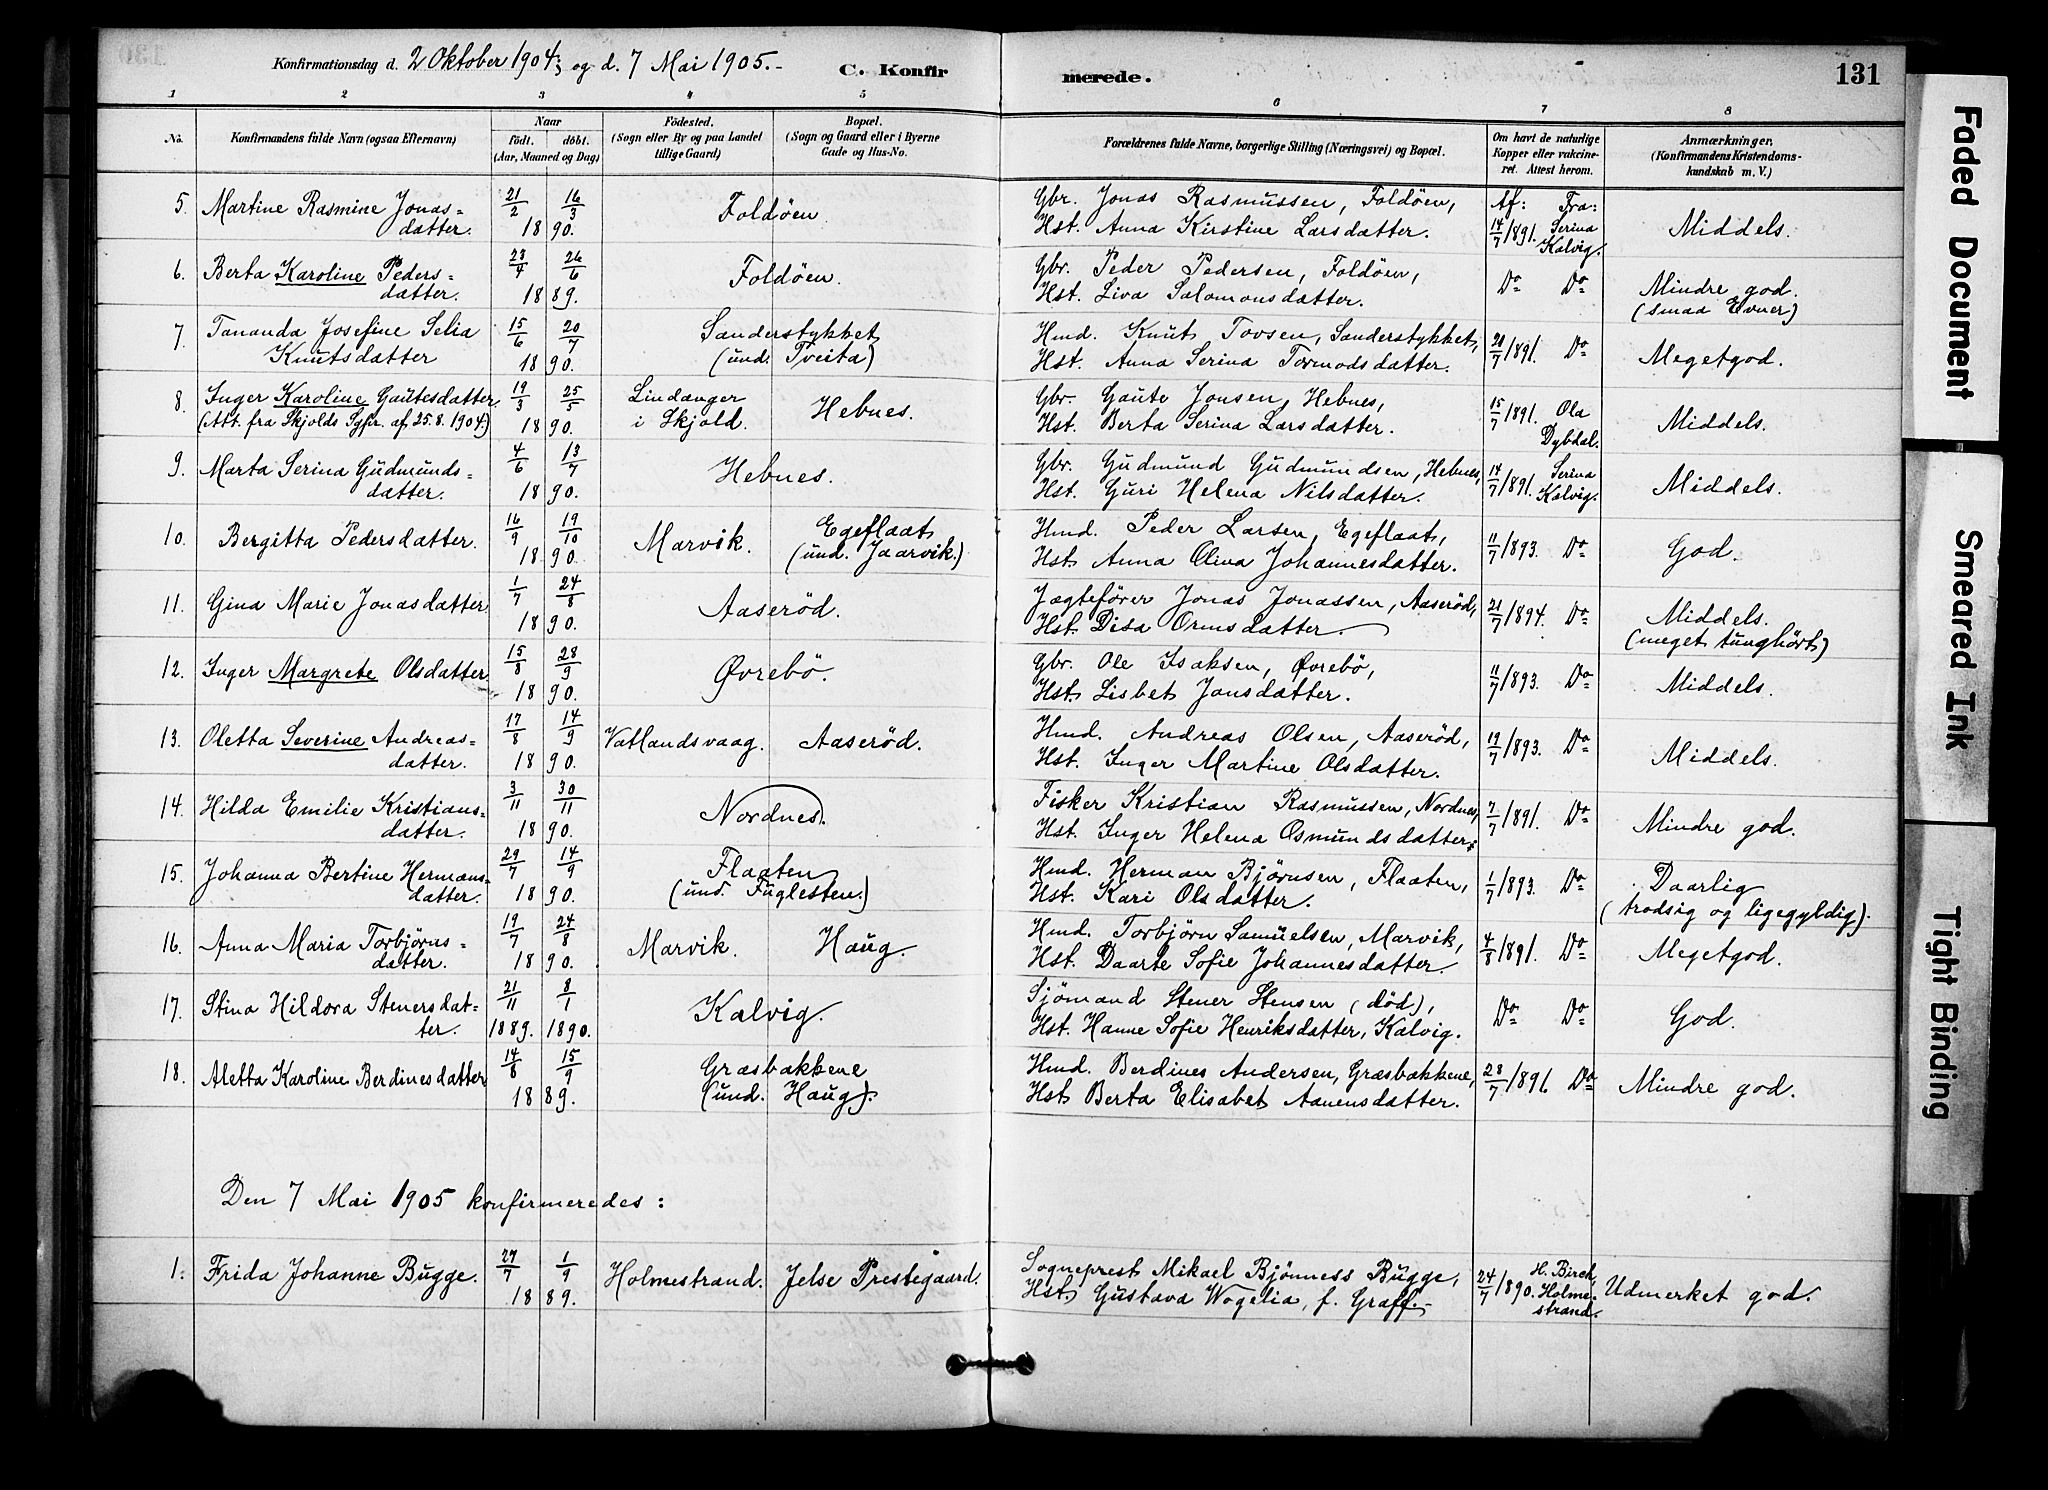 Konfirmationsdag d. 2 Oktober 1904; og d. 7 Mai 1905.-
C. Konfir
merede.
131
1 2 3 4 5 6 7 8
No.
Konfirmandens fulde Navn (ogsaa Efternavn)
Naar
født. døbt.
(Aar, Maaned og Dag)
Fødested.
(Sogn eller By og paa Landet
tillige Gaard)
Bopæl.
(Sogn og Gaard eller i Byerne
Gade og Hus-No.
Forældrenes fulde Navne, borgerlige Stilling (Næringsvei) og Bopæl.
Om havt de naturlige
Kopper eller vakcine-
ret. Attest herom.
Anmærkninger.
(Konfirmandens Kristendoms-
kundskab m. V.)
5. Martine Rasmine Jonas= 21/2 16/3 Foldöen. Gbr. Jonas Rasmussen, Foldöen, Af: Fra:
datter. 18 90. Hst. Anna Kirstine Larsdatter. 14/7 1891. Serina Kalvig. Middels.
6. Berta Karoline Peders= 23/4 26/6 Foldöen. Gbr. Peder Pedersen, Foldöen, Do Do Mindre god.
datter. 18 89. Hst. Liva Salomonsdatter. (smaa Evner)
7. Tananda Josefine Selia 15/6 20/7 Sanderstykket Hmd. Knut Tovsen, Sanderstykket,
Knutsdatter 18 90. (und. Tveita) Hst. Anna Serina Tormodsdatter. 20/7 1891. Do Megetgod.
8. Inger Karoline Gautesdatter 19/3 25/5 Lindanger Hebnes. Gbr. Gaute Jonsen, Hebnes, 15/7 1891. Ola
(Att. fra Skjolds Sgpr. af 25.8.1904.) 18 90. i Skjold. Hst. Berta Serina Larsdatter. Dybdal. Middels.
9. Marta Serina Gudmunds= 4/6 13/7 Hebnes. Gbr. Gudmund Gudmundsen, Hebnes, 14/7 1891. Serina
datter. 18 90. Hst. Guri Helena Nilsdatter. Kalvig. Middels.
10. Bergitta Pedersdatter. 16/9 19/10 Marvik. Egeflaat Hmd. Peder Larsen, Egeflaat,
18 90. (und. Jaarvik.) Hst. Anna Olina Johannesdatter. 11/7 1893. Do God.
11. Gina Marie Jonasdatter 1/7 24/8 Aaseröd. Jægtefører Jonas Jonassen, Aaseröd, 21/7 1894. Do Middels.
18 90. Hst. Disa Ormsdatter. (meget tunghørt)
12. Inger Margrete Olsdatter 15/8 28/9 Øvrebö. Gbr. Ole Isaksen, Øvrebö,
18 90. Hst. Lisbet Jonsdatter. 11/7 1893. Do Middels.
13. Oletta Severine Andreas= 17/8 14/9 Vatlandsvaag. Aaseröd. Hmd. Andreas Olsen, Aaseröd,
datter. 18 90. Hst. Inger Martine Olsdatter. 19/7 1893. Do Middels.
14. Hilda Emilie Kristians= 3/11 30/11 Nordnes. Fisker Kristian Rasmussen, Nordnes,
datter. 18 90. Hst. Inger Helena Osmundsdatter. 7/7 1891. Do Mindre god.
15. Johanna Bertine Hermans= 29/7 14/9 Flaaten Hmd. Herman Bjørnsen, Flaaten, Daarlig
datter. 18 90. (und. Fuglesten.) Hst. Kari Olsdatter. 1/7 1893. Do (trodsig og ligegyldig).
16. Anna Maria Torbjørns= 19/7 24/8 Marvik. Haug. Hmd. Torbjørn Samuelsen, Marvik,
datter. 18 90. Hst. Daarte Sofie Johannesdatter. 4/8 1891. Do Megetgod.
17. Stina Hildora Stenersdat= 21/11 8/1 Kalvig. Sjömand Stener Stensen (död),
ter. 1889. 1890. Hst. Hanne Sofie Henriksdatter, Kalvig. Do Do God.
18. Aletta Karoline Berdinesdatter 14/8 15/9 Græsbakkene Hmd. Berdines Andersen, Græsbakkene,
18 89. (und. Haug). Hst Berta Elisabet Aanensdatter. 28/7 1891. Do Mindre god.
Den 7 Mai 1905 konfirmeredes:
1. Frida Johanne Bugge. 27/7 1/9 Holmestrand. Jelse Prestegaard. Sogneprest Mikael Bjönness Bugge, 24/7 1890. H. Birch, Udmerket god.
18 89. Hst. Gustava Wogelia, f. Graff.- Holme-
strand.
Faded Document
Smeared Ink
Tight Binding